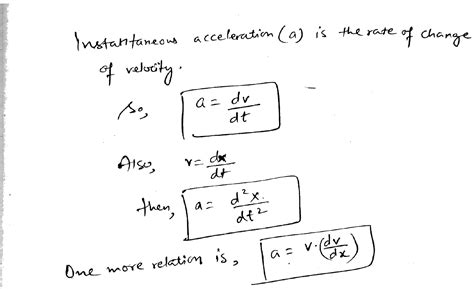 Instantaneous acceleration (a) is the rate of change
of velocity.
So, a = dv/dt
Also, v = dx/dt
then, a = d²x/dt²
One more relation is, a = v.(dv/dx)